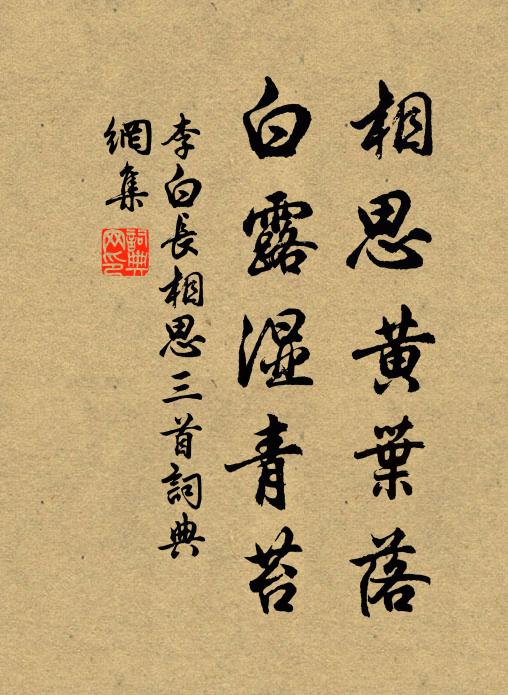 相思黃葉落
白露湿青苔
李白長相思三首詞典
網集
詞典
网印